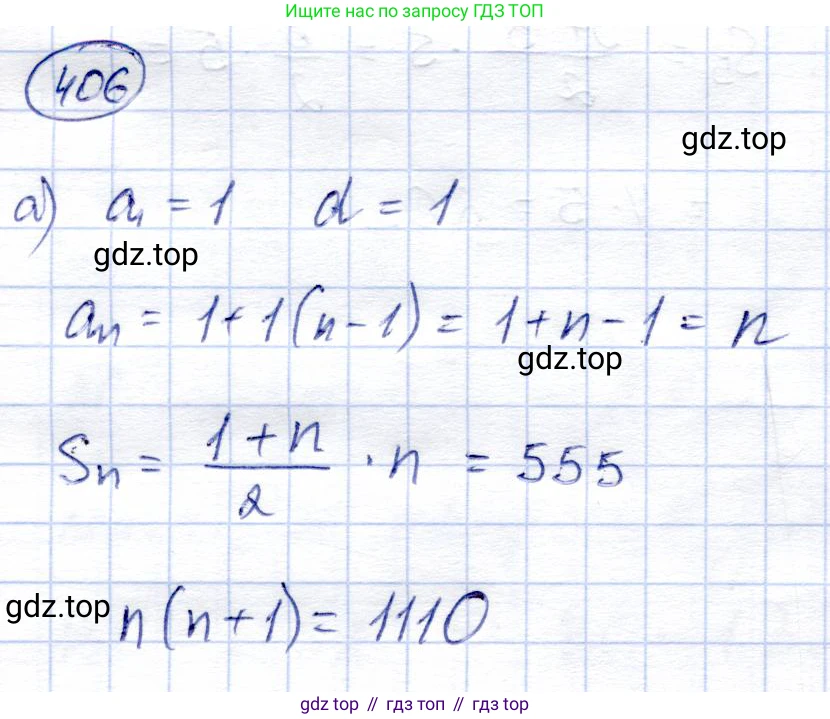 Ищите нас по запросу ГДЗ ТОП
406
gdz.top
а) a₁ = 1 d = 1
gdz.top
aₙ = 1 + 1(n - 1) = 1 + n - 1 = n
gdz.top
Sₙ = (1 + n)/2 · n = 555
gdz.top
n(n + 1) = 1110
gdz top // гдз топ // гдз top